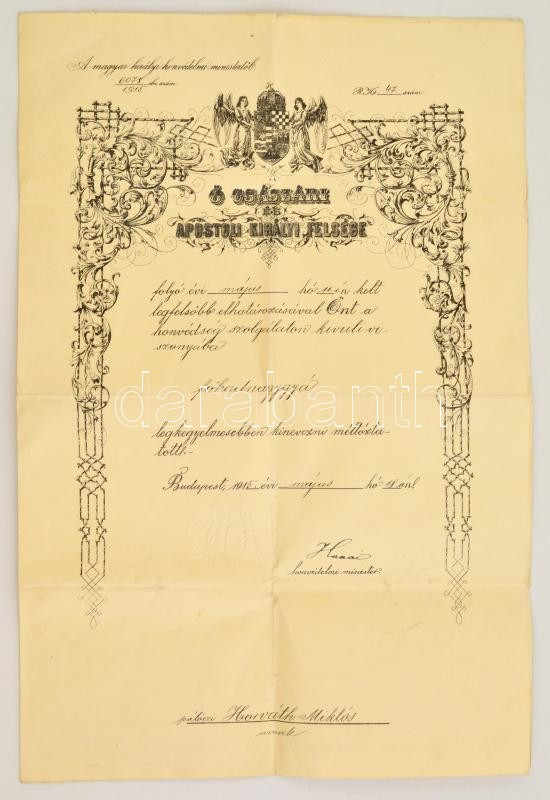 A magyar királyi honvédelmi ministertől.
6078
1915 eln. szám
R.K. 47 szám
Ő CSÁSZÁRI
ÉS
APOSTOLI KIRÁLYI FELSÉGE
folyó évi május hó 11-én kelt
legfelsőbb elhatározásával Önt a
honvédség szolgálaton kívüli vi-
szonyába
főhadnaggyá
legkegyelmesebben kinevezni méltózta-
tott.-
Budapest, 1915. évi május hó 18.án.
Hazai
honvédelmi minister.
pálóczi Horváth Miklós
úrnak
darabanth